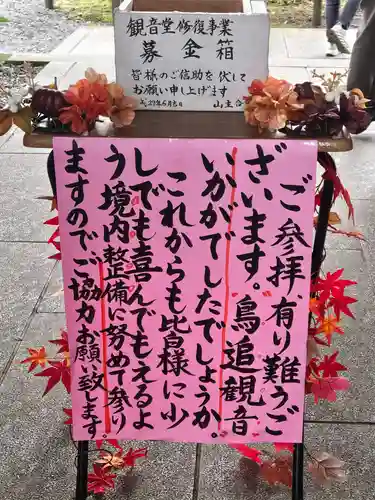 観音堂修復事業
募金箱
皆様のご信助を伏して
お願い申し上げます
山主
ご参拝、有り難うご
ざいます。鳥追観音
いかがでしたでしょうか。
これからも皆様に少
しでも喜んでもらえるよ
う境内整備に努めて参り
ますのでご協力お願い致します。